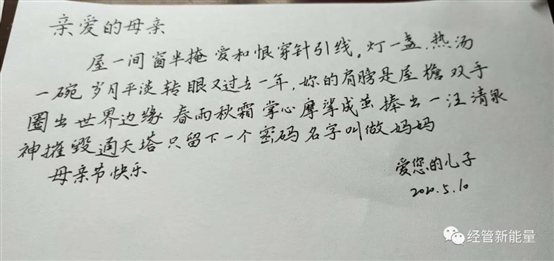 亲爱的母亲
屋一间窗半掩 爱和恨穿针引线。灯一盏.热汤
一碗 岁月平淡 转眼又过去一年，妳的肩膀是屋檐 双手
圈出世界边缘 春雨秋霜 掌心摩挲成茧 捧出一汪清泉
神摧毁通天塔只留下一个密码名字叫做妈妈
母亲节快乐
爱您的儿子
2020.5.10
经管新能量